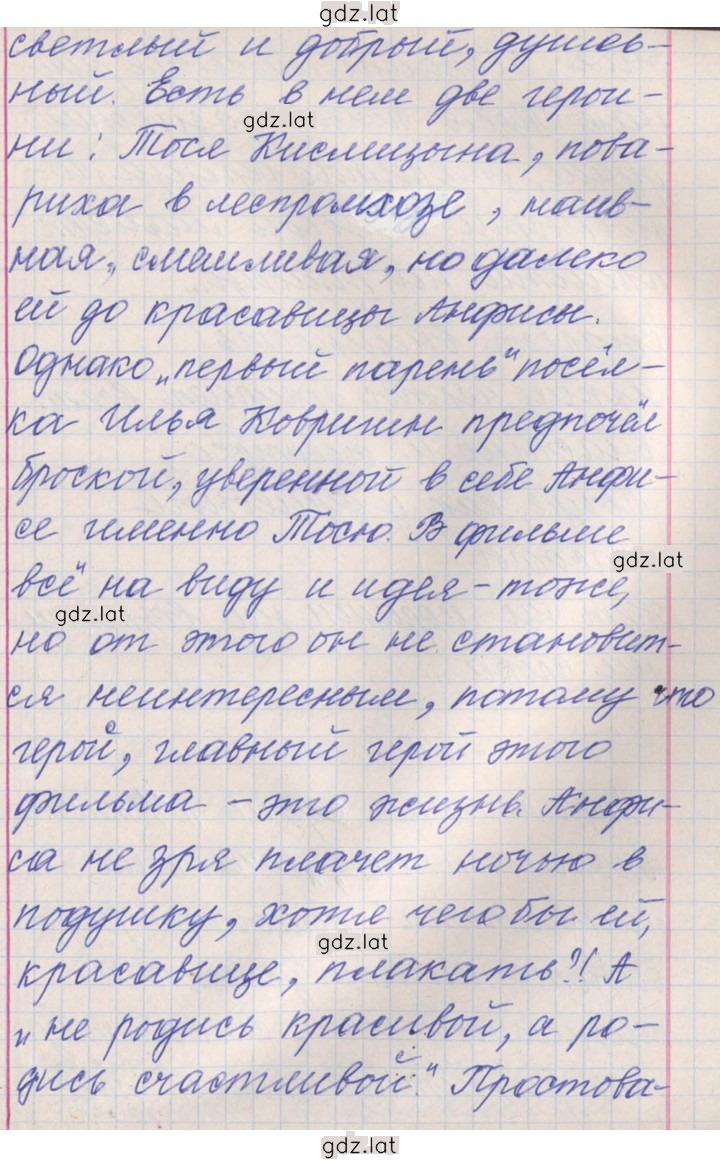 gdz.lat
светлый и добрый, душев-
ный. Есть в нем две герои-
gdz.lat
ни: Тося Кислицына, пова-
риха в леспромхозе, наив-
ная, смешливая, но далеко
ей до красавицы Анфисы.
Однако „первый парень“ посёл-
ка Илья Ковригин предпочёл
броской, уверенной в себе Анфи-
се именно Тосю. В фильме
gdz.lat
всё на виду и идея - тоже,
gdz.lat
но от этого он не становит-
ся неинтересным, потому что
герой, главный герой этого
фильма - это жизнь. Анфи-
са не зря плачет ночью в
подушку, хотя чего бы ей,
gdz.lat
красавице, плакать?! А
„не родись красивой, а ро-
дись счастливой.“ Простова-
gdz.lat